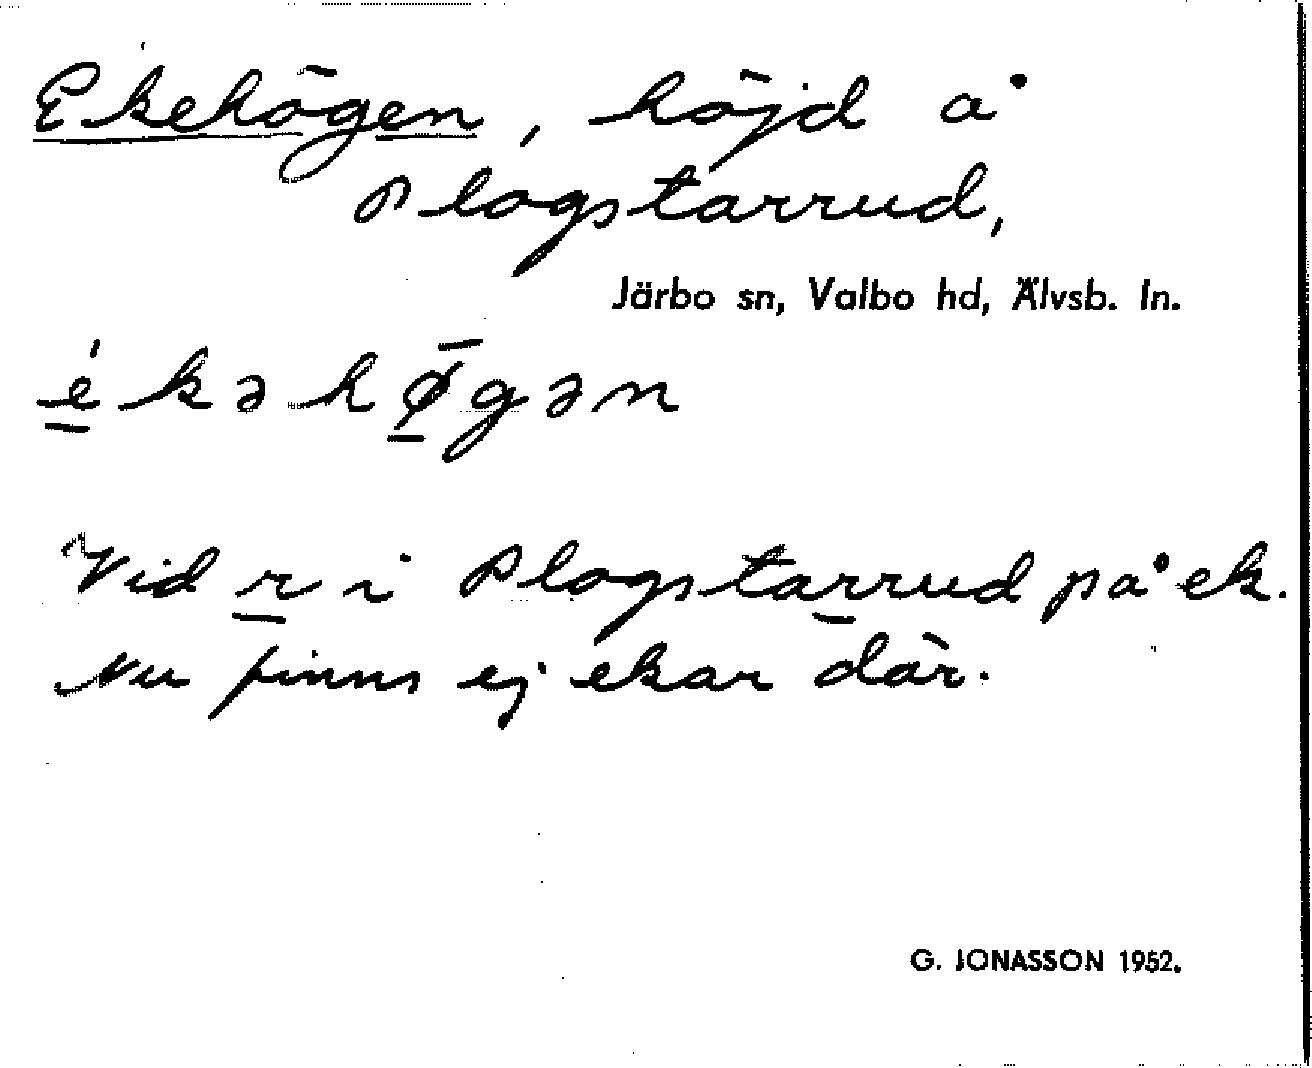 Ekehögen, höjd å
Plogstarrud,
Järbo sn, Valbo hd, Älvsb. ln.
é̱kəhø̱̄gən
Vid r̲ i Plogstar̲rud på ek.
Nu finns ej ekar där.
G. JONASSON 1952.